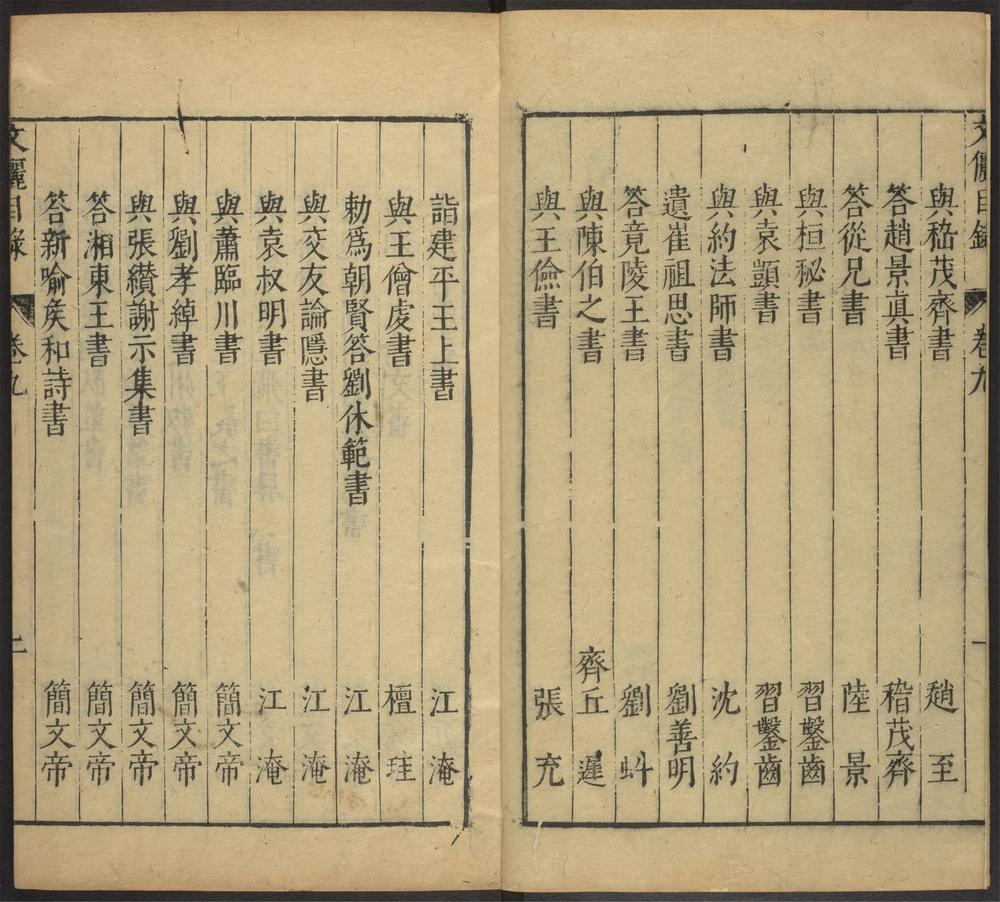 文儷目錄 卷九 一
與嵇茂齊書 趙至
答趙景眞書 嵇茂齊
答從兄書 陸景
與桓秘書 習鑿齒
與袁顗書 習鑿齒
與約法師書 沈約
遺崔祖思書 劉善明
答竟陵王書 劉
與陳伯之書 齊丘遲
與王儉書 張充
詣建平王上書 江淹
與王僧虔書 檀珪
勅爲朝賢答劉休範書 江淹
與交友論隱書 江淹
與袁叔明書 江淹
與蕭臨川書 簡文帝
與劉孝綽書 簡文帝
與張纘謝示集書 簡文帝
答湘東王書 簡文帝
答新喻矦和詩書 簡文帝
文儷目錄 卷九 二